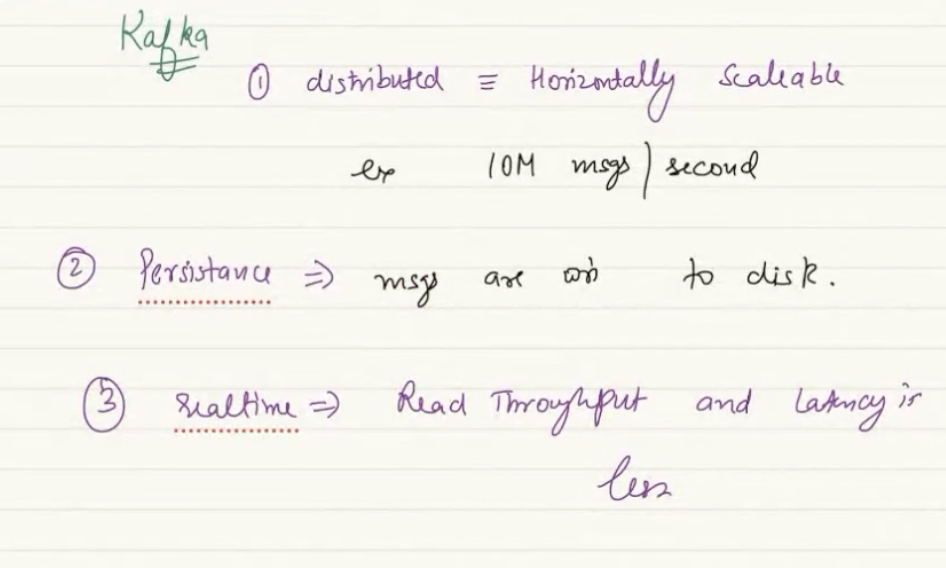 Kafka
① distributed ≡ Horizontally Scaleable
ex 10M msgs / second
② Persistance ⇒ msgs are to disk.
③ realtime ⇒ Read Throughput and Latency is
less